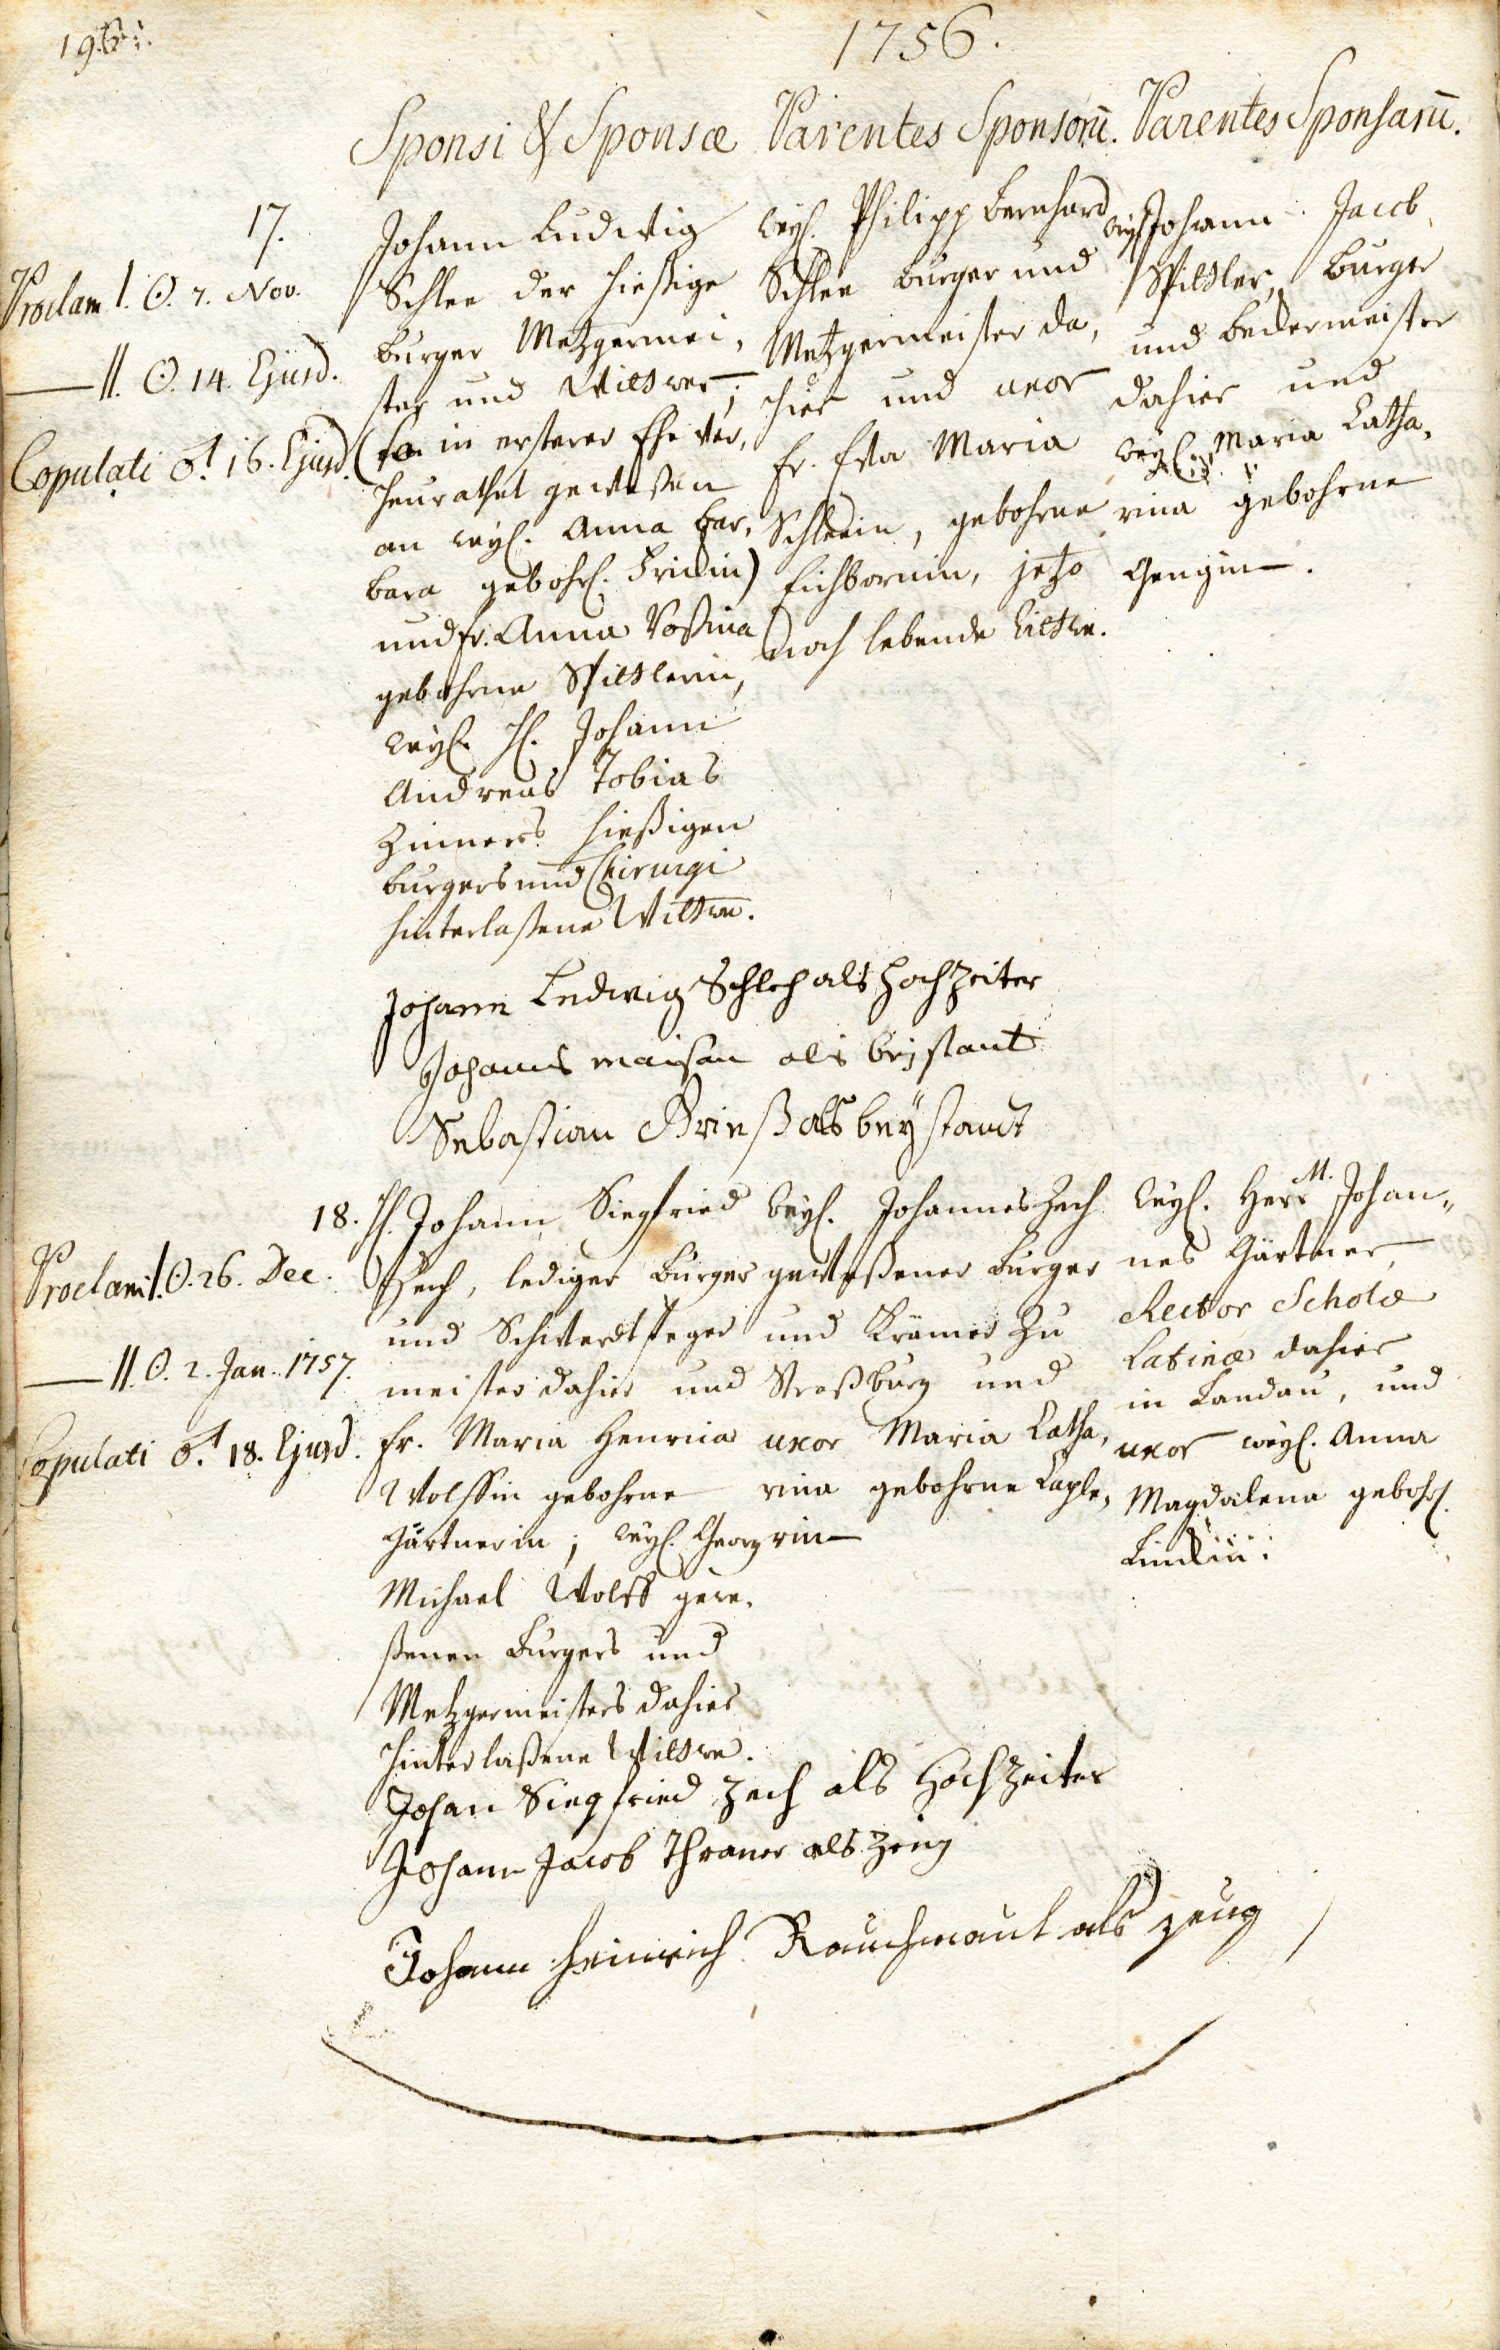 196.
1756.
Sponsi & Sponsæ
Parentes Sponsorū.
Parentes Sponsarū.
17.
Proclam I. ☉. 7. Nov.
— II. ☉. 14. Ejusd.
Copulati ♂. 16. Ejusd.
Johann Ludwig
Schlee der hießige
burger Metzgermei,
ster und Wittwer;
(so in ersterer Ehe ver,
heurathet geweßen
an weyl. Anna Bar,
bara gebohrl.
und fr. Anna Rosina
gebohrne Spittlerin,
weyl. H. Johann
Andreas Tobias
Zinners hießigen
burgers und Chirurgi
hinterlaßene Wittwe.
weyl. Philipp Bernhard
Schlee burger und
Metzgermeister da,
hier und uxor
fr. Eva Maria
Schleein, gebohrne
Eichbornin, jetzo
noch lebende Wittwe.
weyl. Johann Jacob
Spittler, burger
und beckermeister
dahier und
weyl. Maria Catha,
rina gebohrne
Gengin.
Johann Ludwig Schleh als Hochzeiter
Johannes als beystant
Sebastian Brieß als beystandt
18.
Proclam I. ☉. 26. Dec.
— II. ☉. 2. Jan. 1757.
Copulati ♂. 18. Ejusd.
H. Johann Siegfried
Zech, lediger burger
und Schwerdtfeger
meister dahier und
fr. Maria Henrica
Wolffin gebohrne
Gärtnerin; weyl. Georg
Michael Wolff gewe,
ßenen burgers und
Metzgermeisters dahier
hinterlaßene Wittwe.
weyl. Johannes Zech
geweßener burger
und Krämer zu
Straßburg und
uxor Maria Catha,
rina gebohrne Caple,
rin
weyl. Herr M. Johan,,
nes Gärtner,
Rector Scholæ
Latinæ dahier
in Landau, und
uxor weyl. Anna
Magdalena gebohrl.
Lindin.
Johan Siegfried Zech als Hochzeiter
Johann Jacob Thraner als Zeug
Johann Heinrich Rauchmaul als zeug